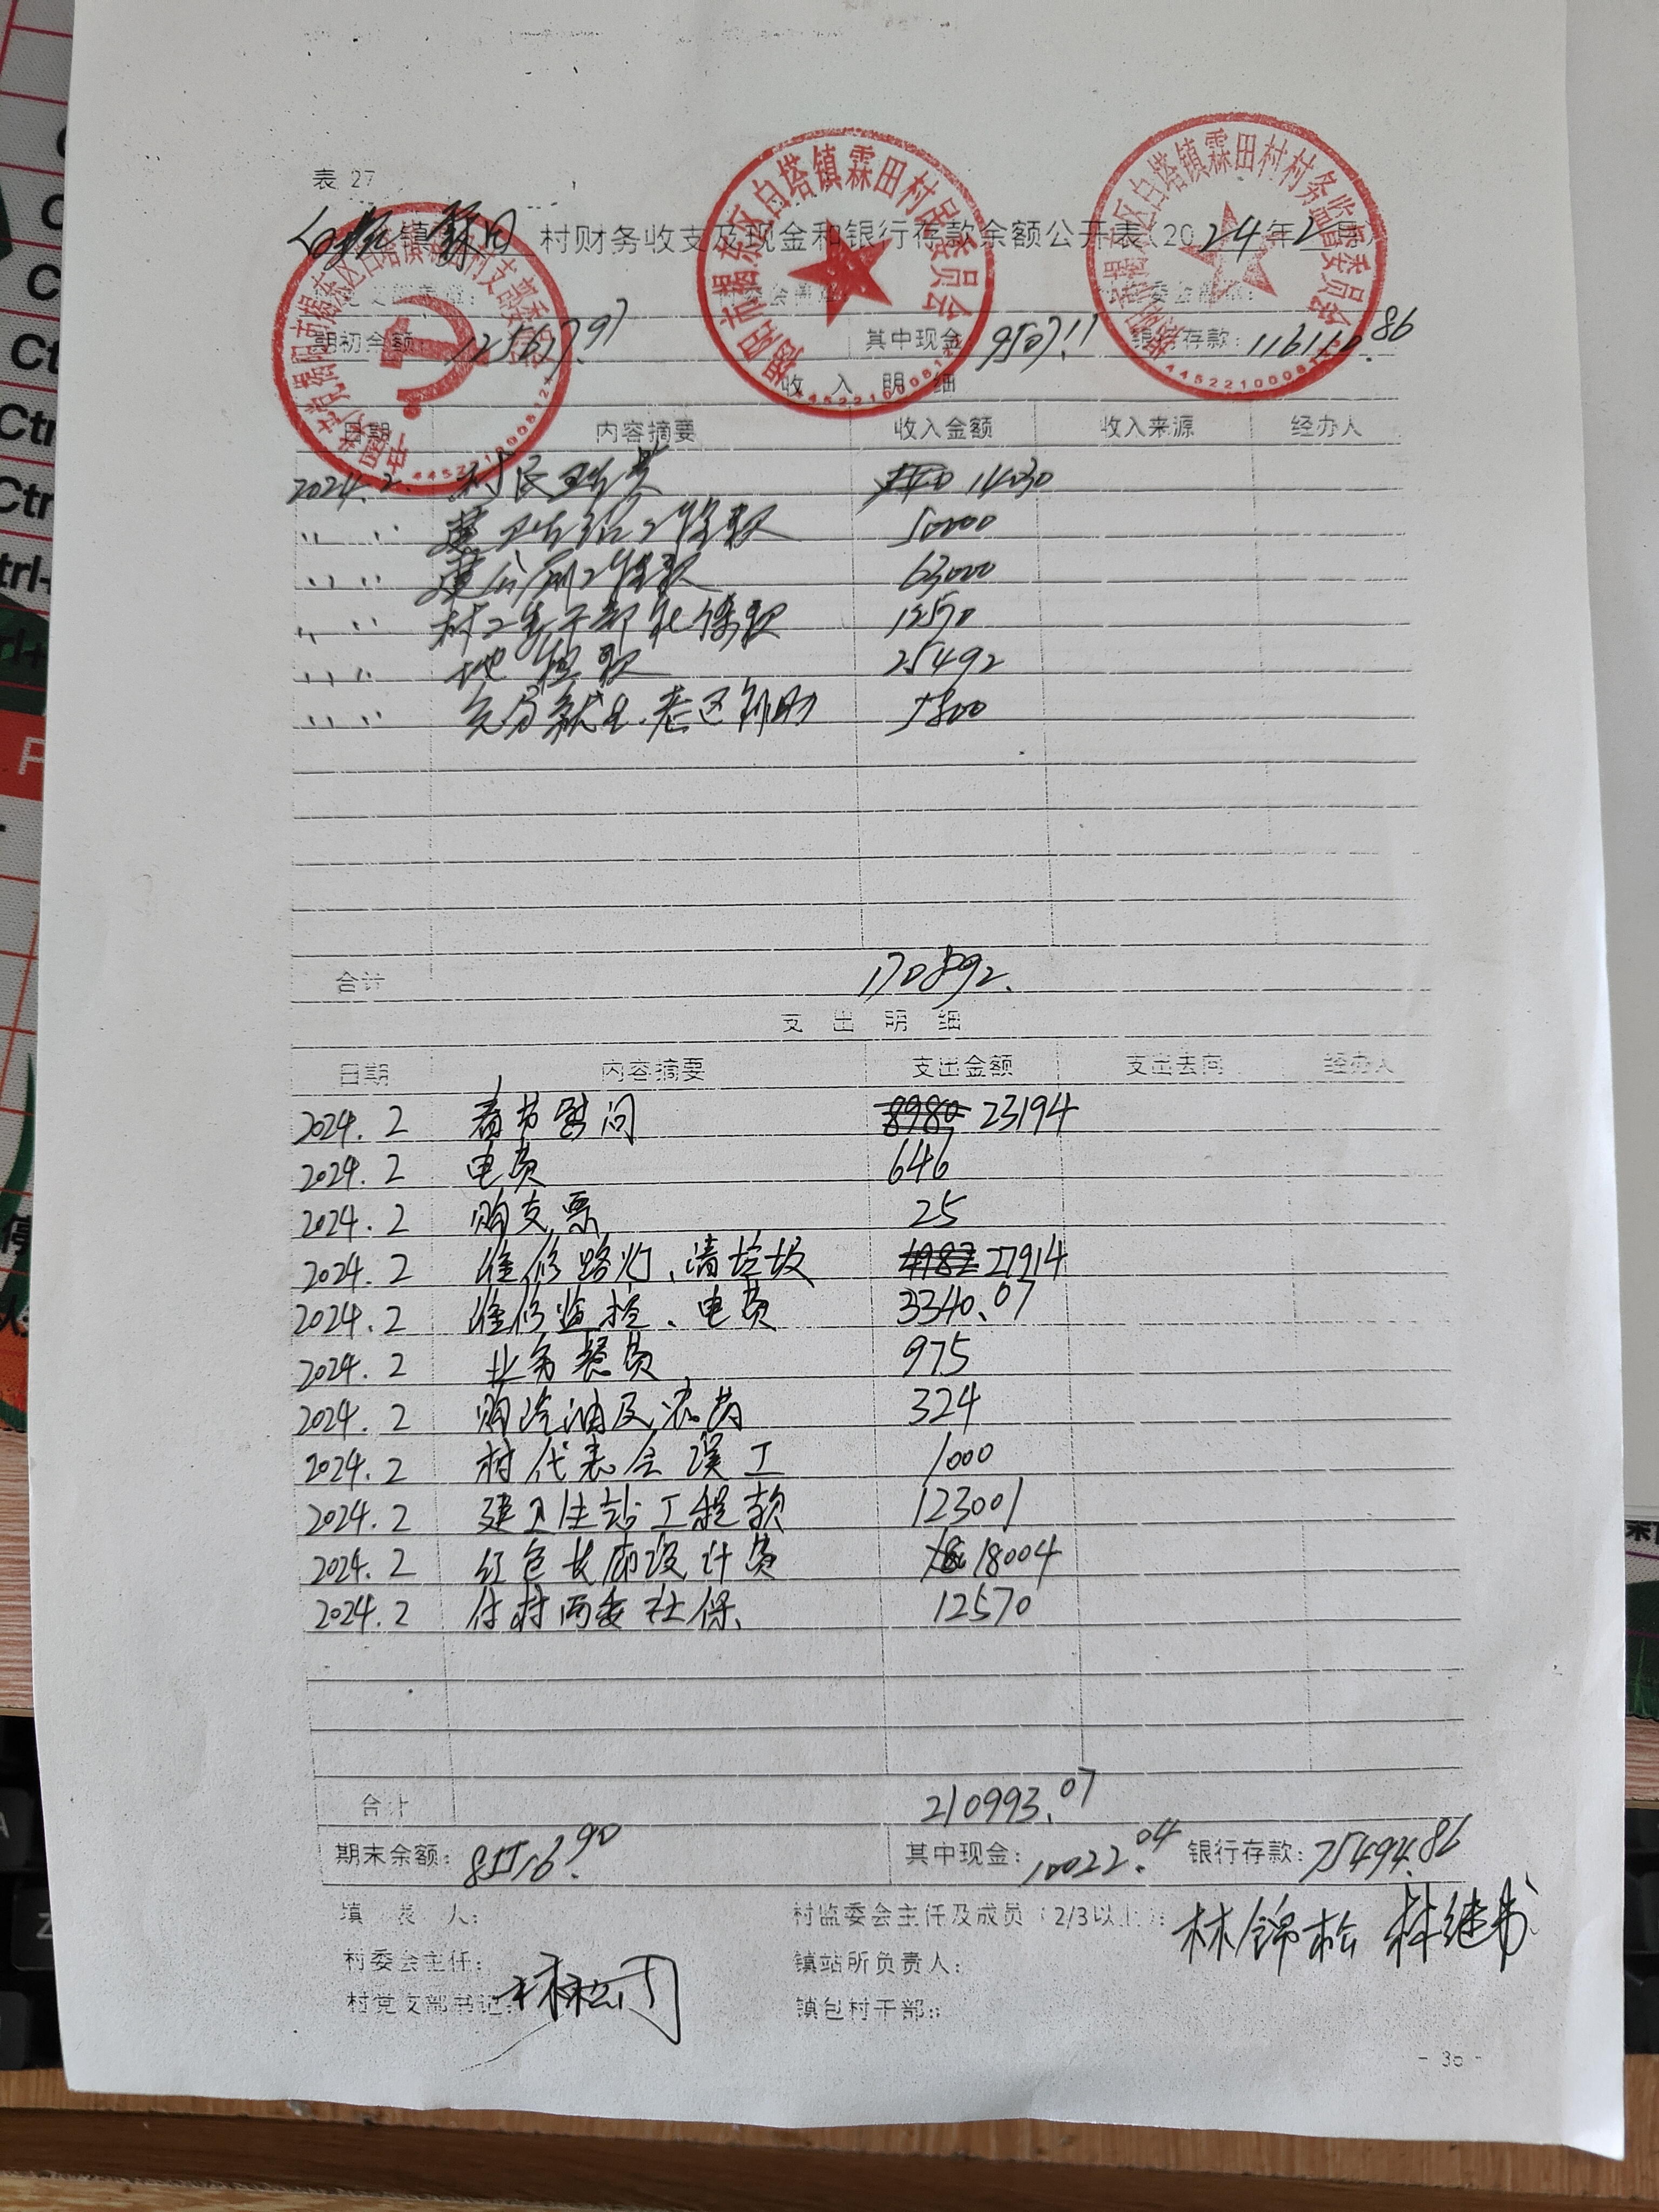 表 27
白塔镇霖田村财务收支及现金和银行存款余额公开表(2024年2月)
期初余额：125617.97 其中现金 9507.11 银行存款：116110.86
收入明细
日期 内容摘要 收入金额 收入来源 经办人
2024.2. 村民 14030
〃 〃 建卫生站工程款 50000
〃 〃 建公厕工程款 63000
〃 〃 村干部社保款 12570
〃 〃 地租款 25492
〃 〃 老区补助 5800
合计 170892.
支出明细
日期 内容摘要 支出金额 支出去向 经办人
2024.2 春节慰问 8980 23194
2024.2 电费 646
2024.2 购支票 25
2024.2 维修路灯、清垃圾 4982 27914
2024.2 维修监控、电费 3340.07
2024.2 业务餐费 975
2024.2 购汽油及农药 324
2024.2 村代表会误工 1000
2024.2 建卫生站工程款 123001
2024.2 红色长廊设计费 18004
2024.2 付村两委社保、 12570
合计 210993.07
期末余额：85516.90 其中现金：10022.04 银行存款：75494.86
填 表 人：
村监委会主任及成员（2/3以上）：林锦松 林继书
村委会主任：
镇站所负责人：
村党支部书记：
镇包村干部：
- 36 -
揭阳市揭东区白塔镇霖田村村民委员会
揭阳市揭东区白塔镇霖田村村务监督委员会